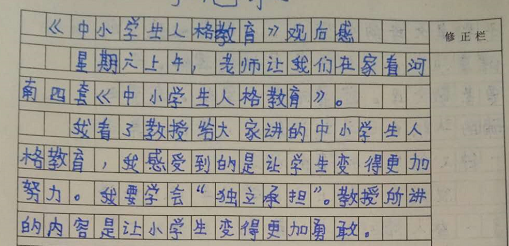 《中小学生人格教育》观后感
修正栏
星期六上午，老师让我们在家看河
南四套《中小学生人格教育》。
我看了教授给大家讲的中小学生人
格教育，我感受到的是让学生变得更加
努力。我要学会“独立承担”。教授所讲
的内容是让小学生变得更加勇敢。